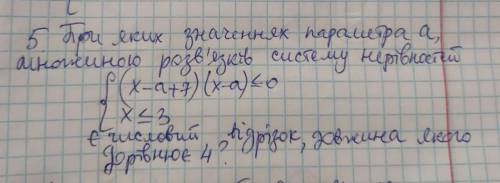 5 При яких значеннях параметра а,
множиною розв'язків систему нерівностей
{ (x-a+7)(x-a)≤0
x≤3
є числовий відрізок, довжина якого
дорівнює 4?